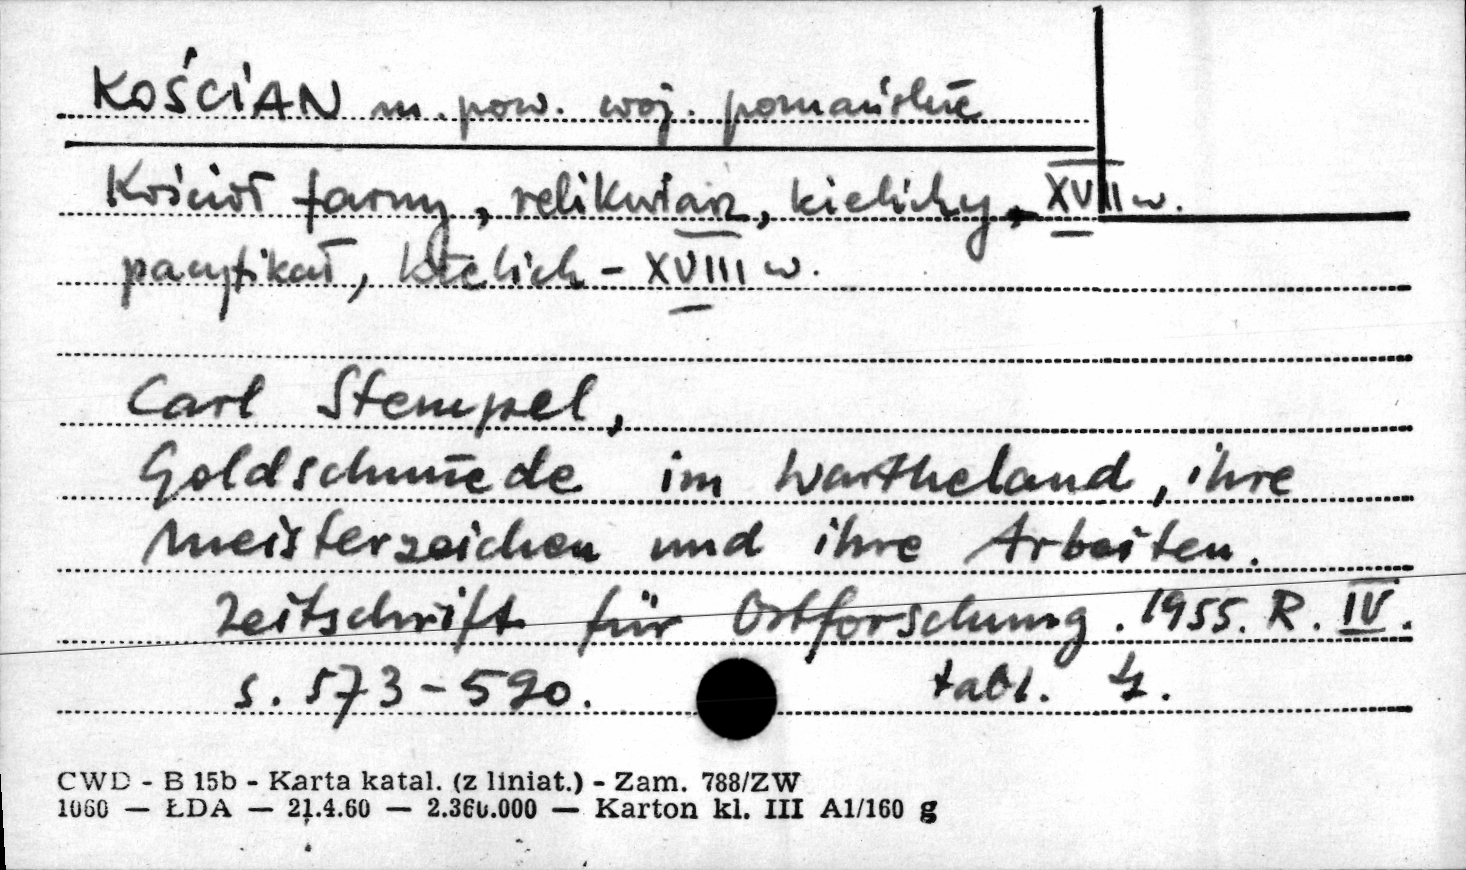 KOŚCIAN m. pow. woj. poznańskie
Kościół farny, relikwiarz, kielichy, XVII w.
pacyfikał, kielich - XVIII w.
Carl Stempel,
Goldschmiede im Wartheland, ihre
Meisterzeichen und ihre Arbeiten.
Zeitschrift für Ostforschung. 1955. R. IV.
s. 573-590. tabl. 4.
CWD - B 15b - Karta katal. (z liniat.) - Zam. 788/ZW
1060 — ŁDA — 21.4.60 — 2.360.000 — Karton kl. III A1/160 g